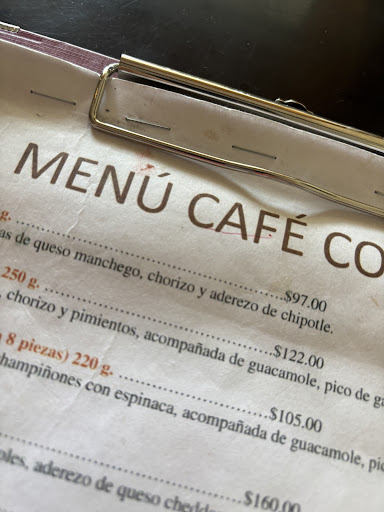 MENÚ CAFÉ CO
g. ........ $97.00
as de queso manchego, chorizo y aderezo de chipotle.
250 g. ........ $122.00
, chorizo y pimientos, acompañada de guacamole, pico de ga
8 piezas) 220 g. ........ $105.00
hampiñones con espinaca, acompañada de guacamole, pic
........ $160.00
oles, aderezo de queso chedda